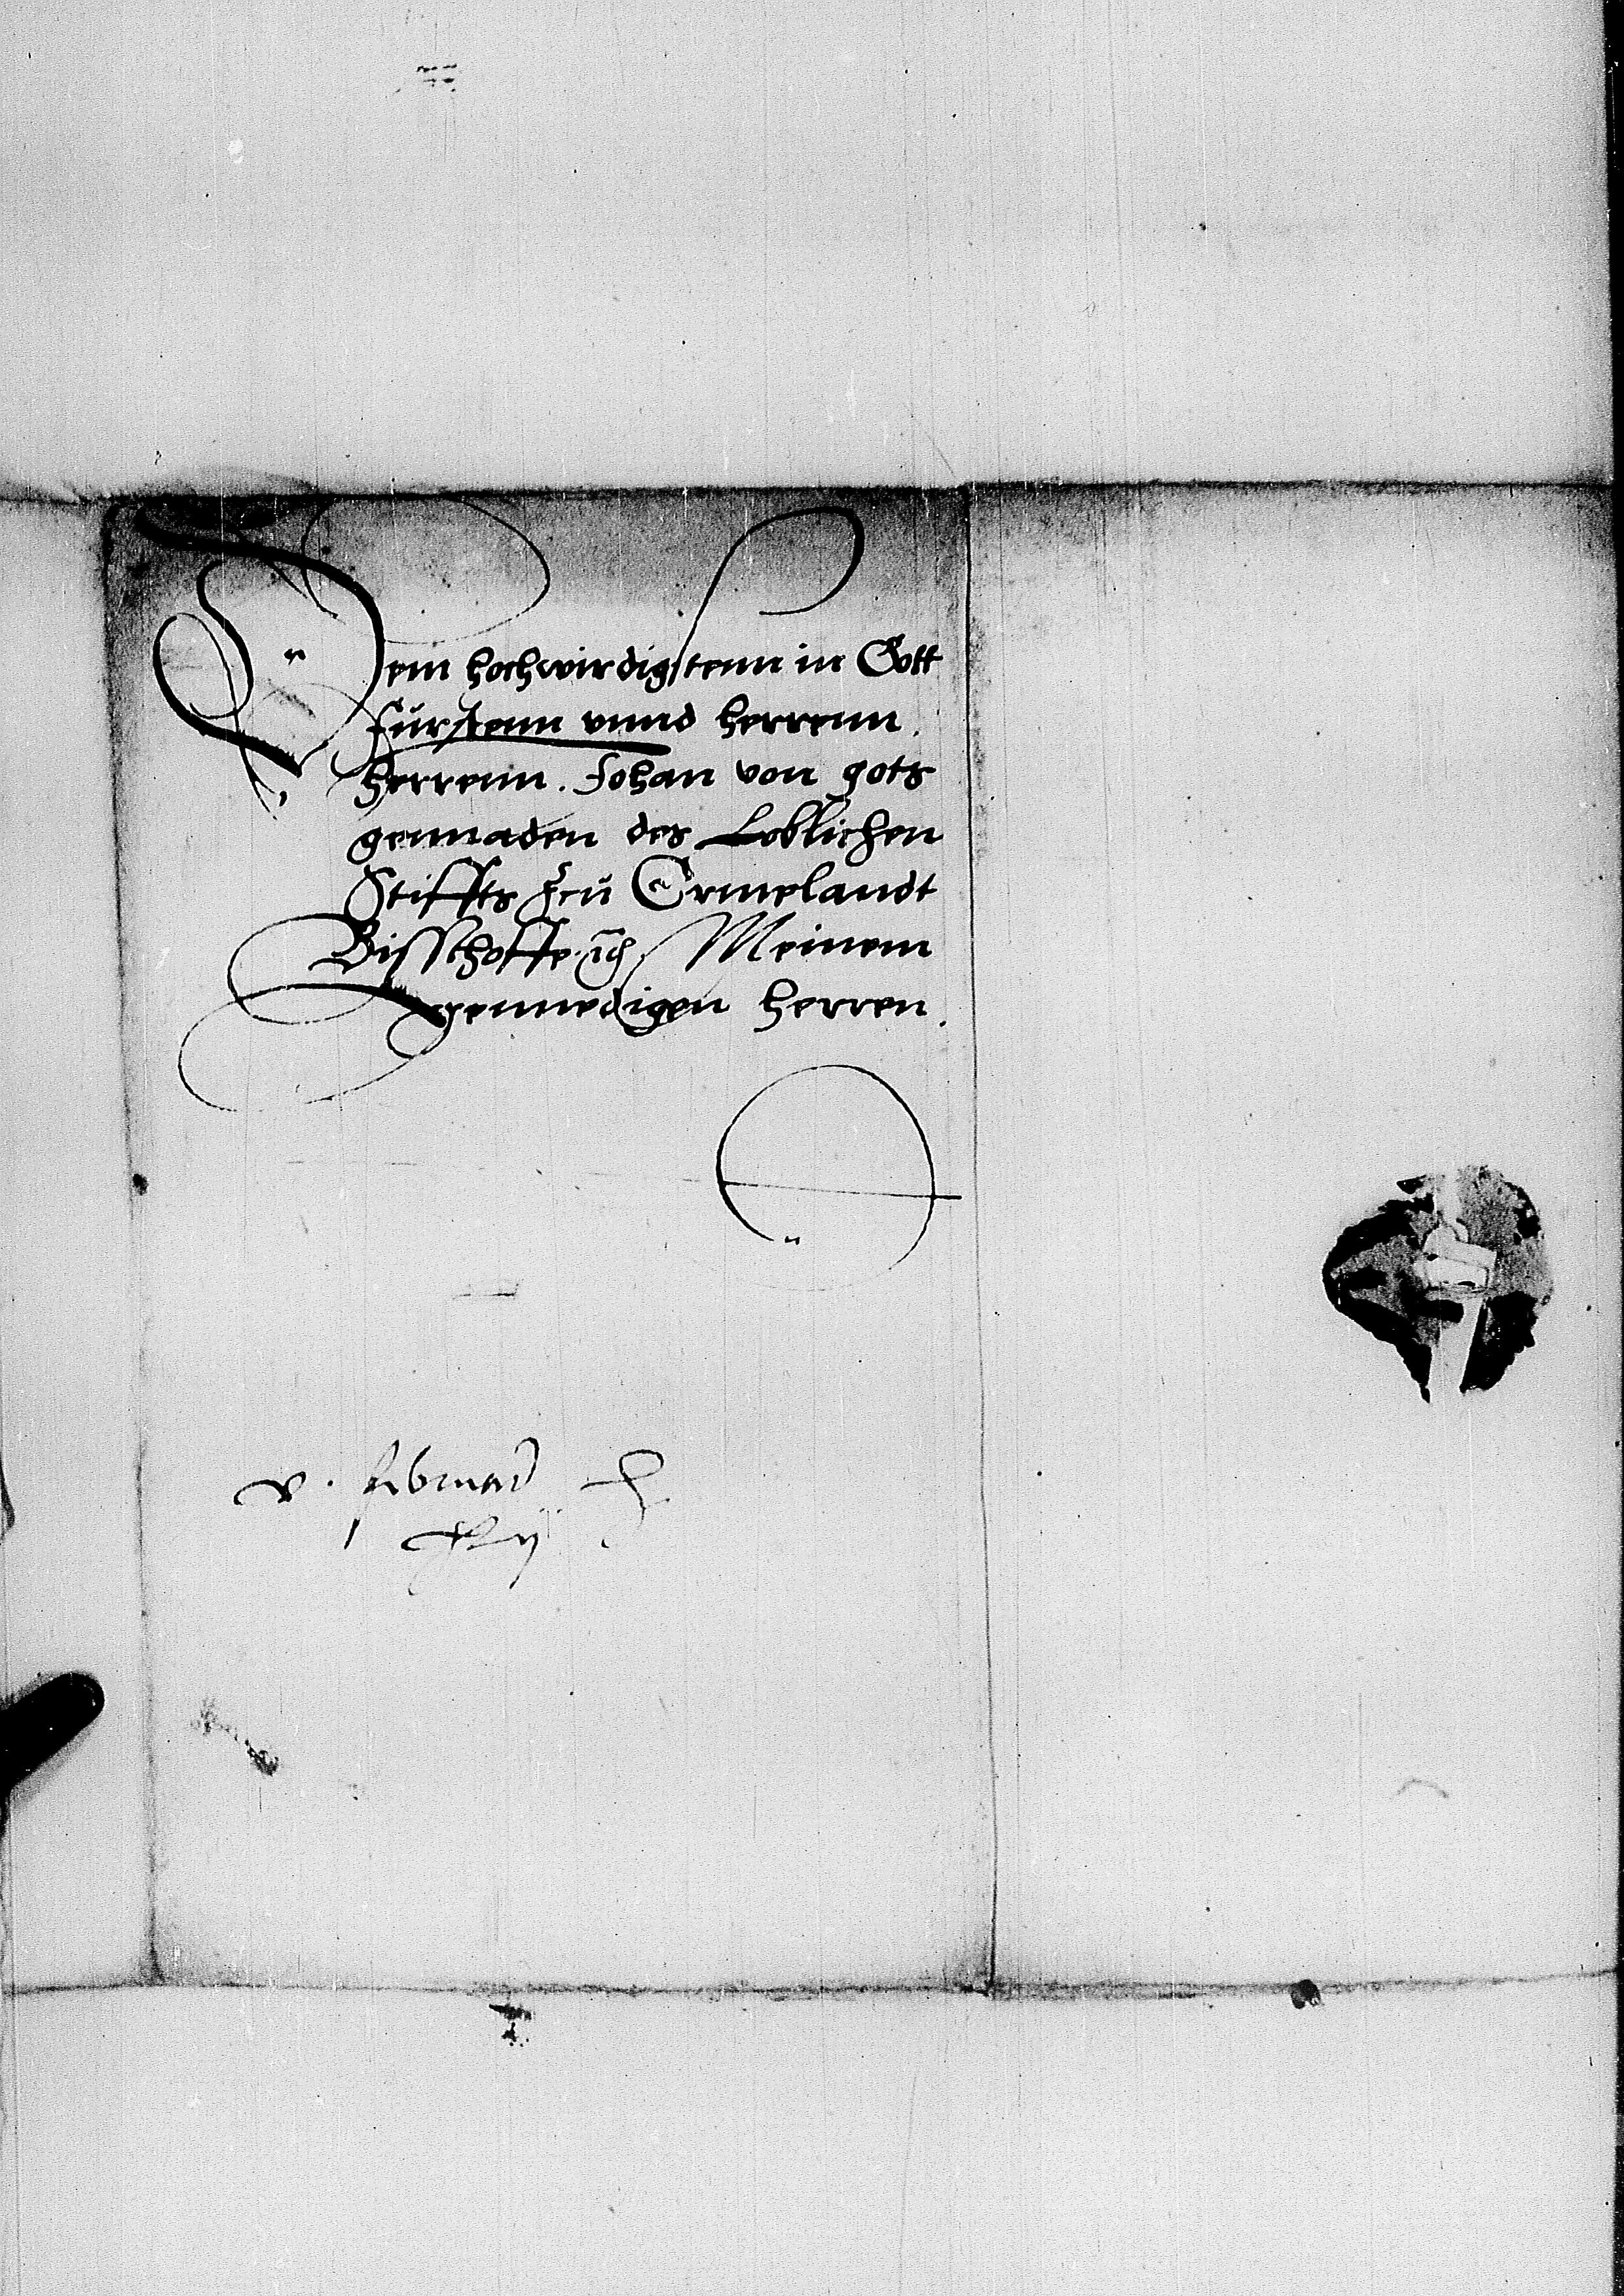 Dem hochwirdigstenn in Gott
fürstenn vnnd herrenn.
herrenn. Johan von gots
gennaden des Loblichen
Stiffts zcu Ermelandt
Bisschoffe Meinem
gennedigen herren.
v. februarii